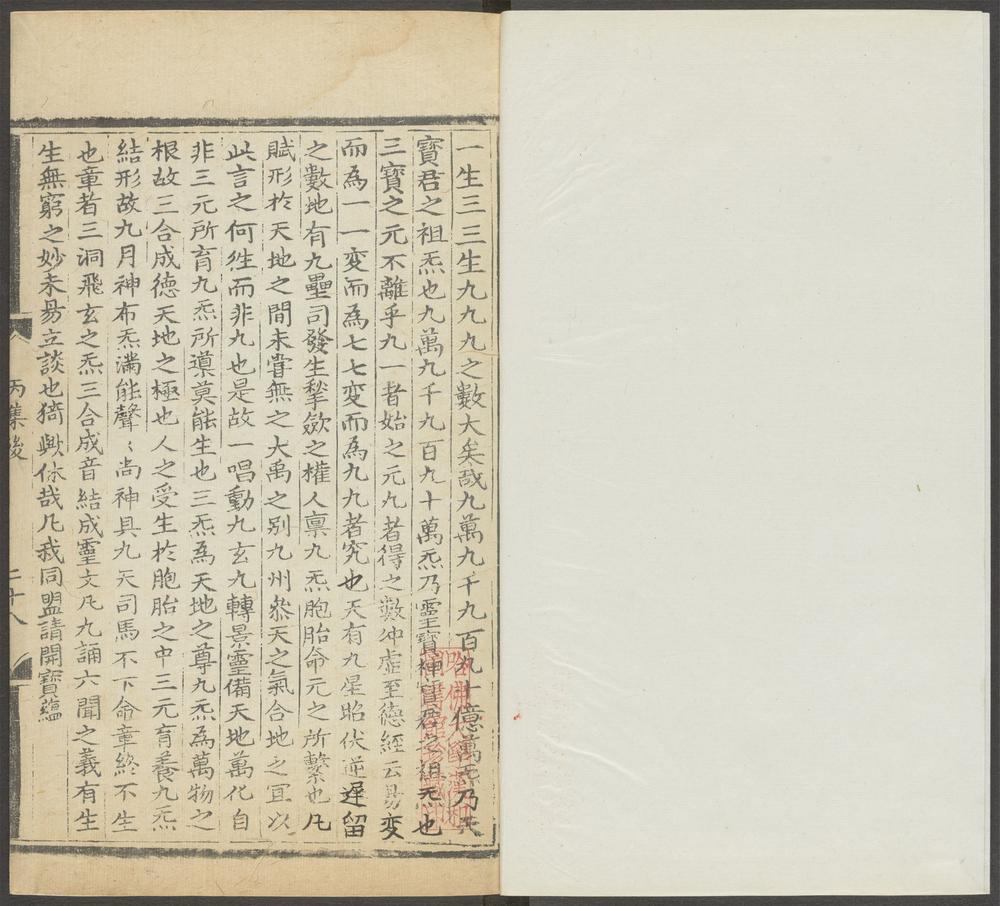 一生三三生九九九之數大矣哉九萬九千九百九十億萬炁乃天
寶君之祖炁也九萬九千九百九十萬炁乃靈寶神寶君之祖炁也
三寶之元不離乎九一者始之元九者得之數冲虛至德經云昜变
而為一一变而為七七变而為九九者究也天有九星昭伏逆遲留
之數地有九壘司發生揫歛之權人禀九炁胞胎命元之所繫也凡
賦形於天地之間未嘗無之大禹之别九州叅天之氣合地之宜以
此言之何徃而非九也是故一唱動九玄九轉景靈備天地萬化自
非三元所育九炁所導莫能生也三炁為天地之尊九炁為萬物之
根故三合成德天地之極也人之受生於胞胎之中三元育養九炁
結形故九月神布炁滿能聲〻尚神具九天司馬不下命章終不生
也章者三洞飛玄之炁三合成音結成靈文凡九誦六聞之義有生
生無窮之妙未昜立談也猗歟休哉凡我同盟請開寶蘊
丙集後
二十八